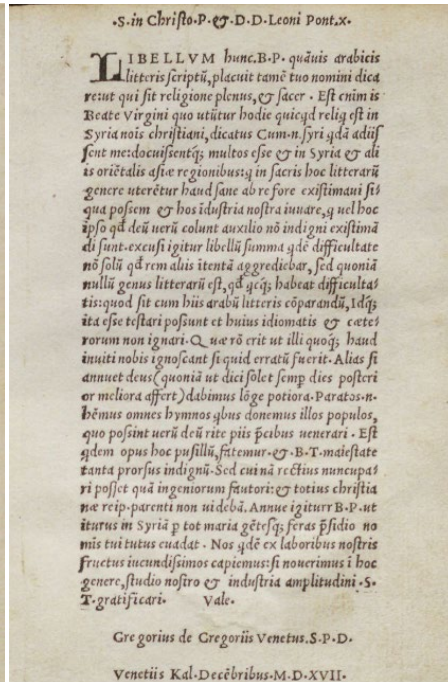 ·S. in Christo·P·& D·D·Leoni Pont·x·
LIBELLVM hunc·B·P· quãuis arabicis
litteris scriptũ, placuit tamẽ tuo nomini dica
re: ut qui sit religione plenus, & sacer · Est enim is
Beate Virgini quo utũtur hodie quicqd reliq est in
Syria nois christiani, dicatus Cum·n·syri qdã adiis
sent me: docuissentq; multos esse & in Syria & ali
is oriẽtalis asiæ regionibus: q in sacris hoc litterarũ
genere uterẽtur haud sane ab re fore existimaui si⸗
qua possem & hos ĩdustria nostra iuuare, q uel hoc
ipso qđ deũ uerũ colunt auxilio nõ indigni existimã
di sunt·excusi igitur libellũ summa qdẽ difficultate
nõ solũ qđ rem aliis ĩtentã aggrediebar, sed quoniã
nullũ genus litterarũ est, qđ qcq; habeat difficulta⸗
tis: quod sit cum hiis arabũ litteris cõparandũ, Idq;
ita esse testari possunt et huius idiomatis & cæte⸗
rorum non ignari· Quæ rõ crit ut illi quoq; haud
inuiti nobis ignoscant si quid erratũ fuerit· Alias si
annuet deus (quoniã ut dici solet semp dies posteri
or meliora affert) dabimus lõge potiora· Paratos·n·
hẽmus omnes hymnos qbus donemus illos populos,
quo possint uerũ deũ rite piis p̃cibus uenerari · Est
qdem opus hoc pusillũ, fatemur·& ·B·T·maiestate
tanta prorsus indignũ· Sed cui nã rectius nuncupa⸗
ri posset quã ingeniorum fautori: & totius christia
næ reip·parenti non uidebã. Annue igiturr B·P·ut
iturus in Syriã p tot maria gẽtesq; feras p̃sidio no
mis tui tutus euadat · Nos qdẽ ex laboribus nostris
fructus iucundissimos capiemus: si nouerimus ĩ hoc
genere, studio nostro & industria amplitudini ·S·
T·gratificari· Vale·
Gregorius de Gregoriis Venetus·S·P·D·
Venetiis Kal·Decẽbribus·M·D·XVII·